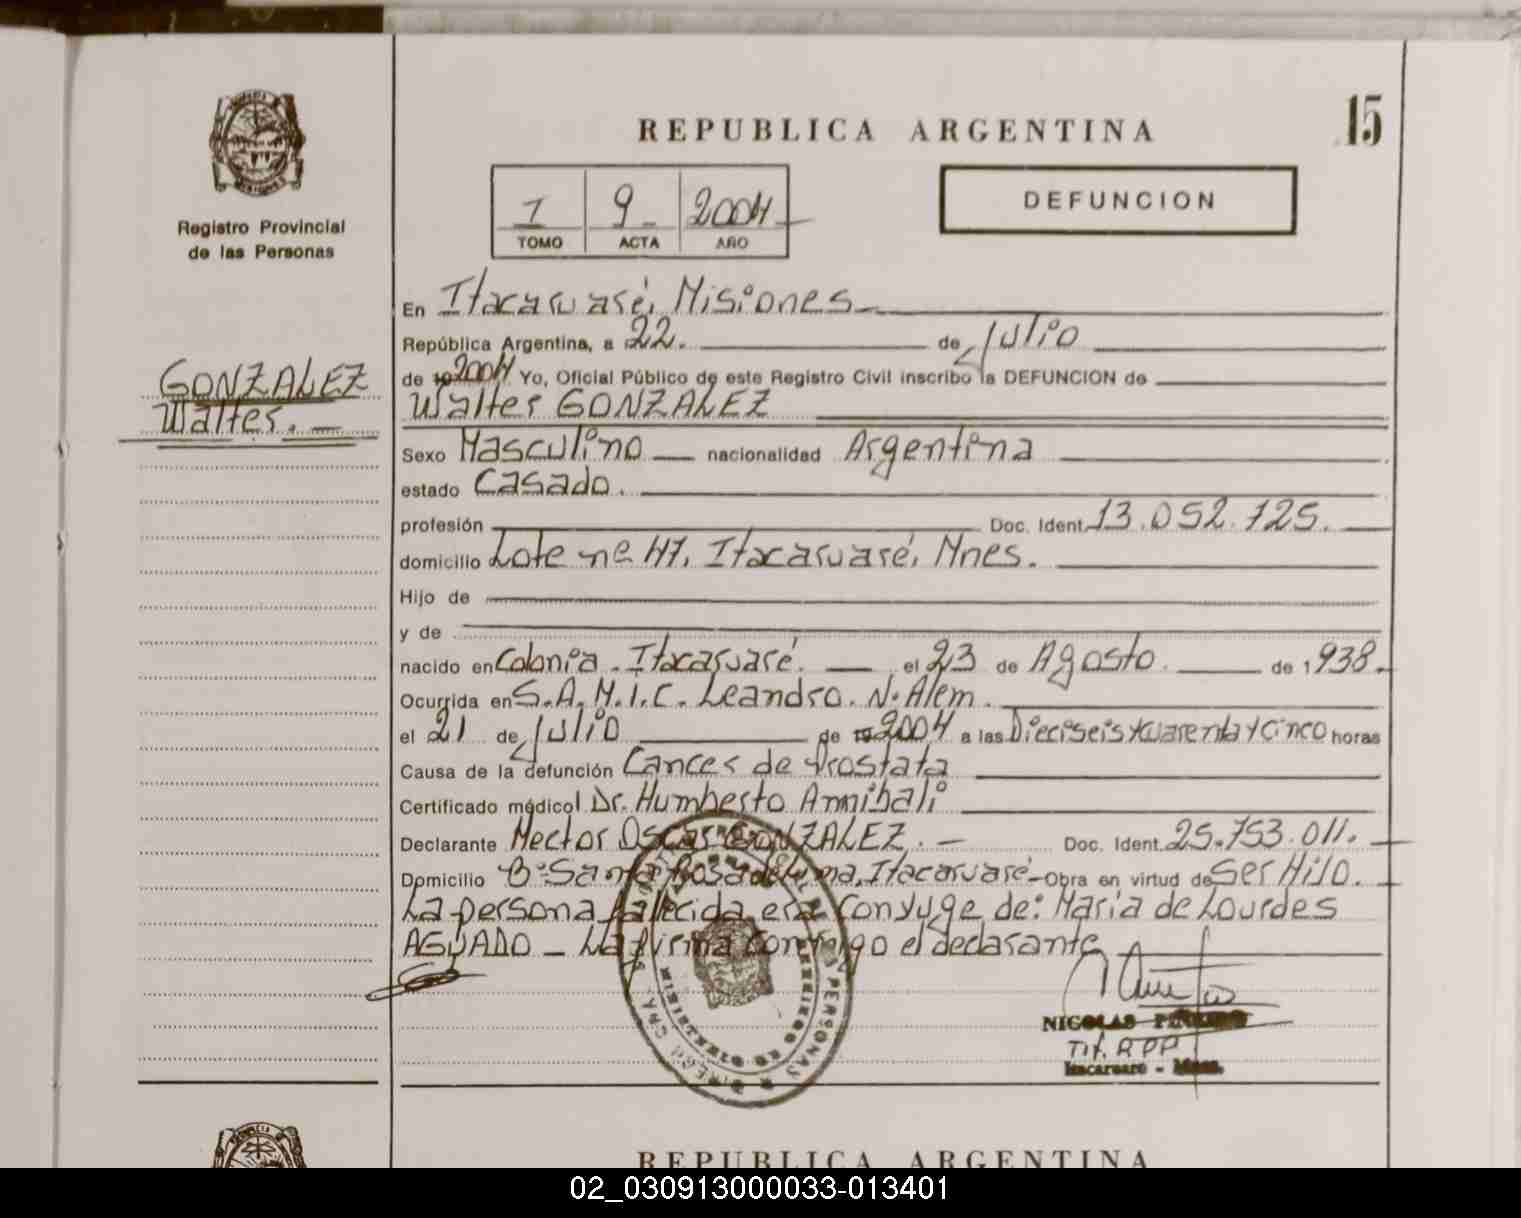 15
REPUBLICA ARGENTINA
DEFUNCION
I 9 2004
TOMO ACTA AÑO
Registro Provincial
de las Personas
GONZALEZ
Walter.
En Itacaruaré, Misiones
República Argentina, a 22. de Julio
de 19 2004 Yo, Oficial Público de este Registro Civil inscribo la DEFUNCION de
Walter GONZALEZ
Sexo Masculino nacionalidad Argentina
estado Casado.
profesión Doc. Ident. 13.052.125.
domicilio Lote ne 47, Itacaruaré, Mnes.
Hijo de
y de
nacido en Colonia. Itacaruaré. el 23 de Agosto. de 1938.
Ocurrida en S.A.M.I.C. Leandro. N. Alem.
el 21 de Julio de 19 2004 a las Dieciseis y cuarenta y Cinco horas
Causa de la defunción Cancer de Prostata
Certificado médico Dr. Humberto Annibali
Declarante Hector Oscar GONZALEZ. Doc. Ident. 25.753.011.
Domicilio B° Santa Rosa de Lima, Itacaruaré Obra en virtud de Ser Hijo.
La persona fallecida era Conyuge de: Maria de Lourdes
AGUADO - La firma conmigo el declarante
NICOLAS
Tit. R PP
Itacaruare - Mnes.
REPUBLICA ARGENTINA
02_030913000033-013401